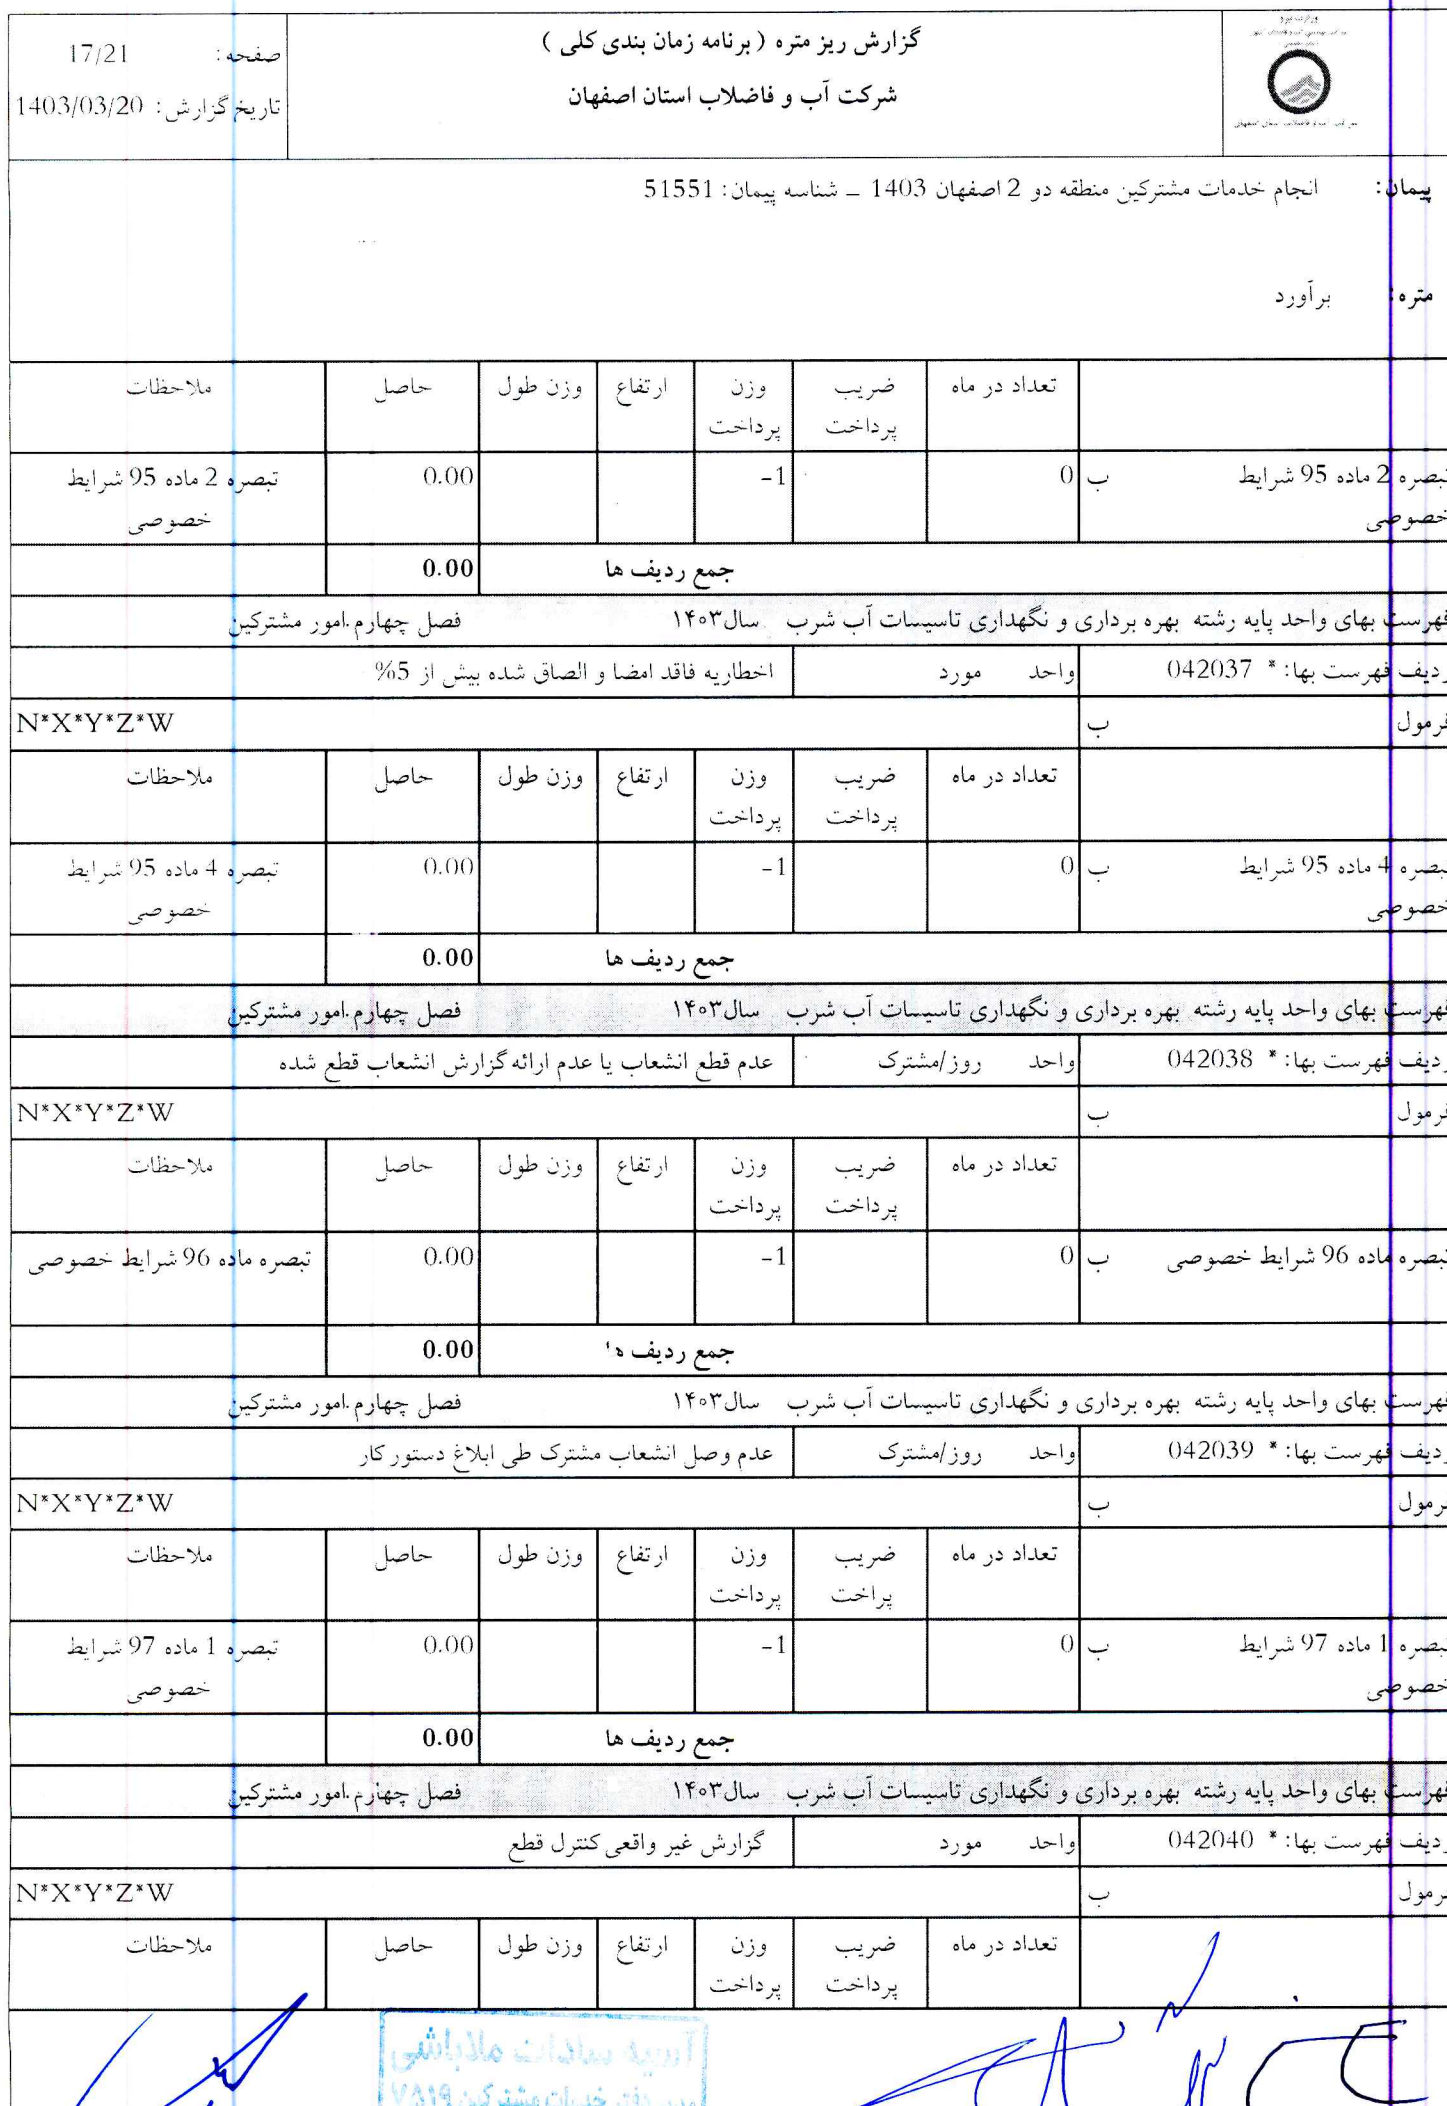 گزارش ریز متره ( برنامه زمان بندی کلی )
شرکت آب و فاضلاب استان اصفهان
صفحه: 17/21
تاریخ گزارش: 1403/03/20
پیمان: انجام خدمات مشترکین منطقه دو 2 اصفهان 1403 – شناسه پیمان: 51551
متره: برآورد
تعداد در ماه ضریب پرداخت وزن پرداخت ارتفاع وزن طول حاصل ملاحظات
تبصره 2 ماده 95 شرایط خصوصی ب 0 -1 0.00 تبصره 2 ماده 95 شرایط خصوصی
جمع ردیف ها 0.00
فهرست بهای واحد پایه رشته بهره برداری و نگهداری تاسیسات آب شرب سال۱۴۰۳ فصل چهارم.امور مشترکین
ردیف فهرست بها: * 042037 واحد مورد اخطاریه فاقد امضا و الصاق شده بیش از 5%
فرمول ب N*X*Y*Z*W
تعداد در ماه ضریب پرداخت وزن پرداخت ارتفاع وزن طول حاصل ملاحظات
تبصره 4 ماده 95 شرایط خصوصی ب 0 -1 0.00 تبصره 4 ماده 95 شرایط خصوصی
جمع ردیف ها 0.00
فهرست بهای واحد پایه رشته بهره برداری و نگهداری تاسیسات آب شرب سال۱۴۰۳ فصل چهارم.امور مشترکین
ردیف فهرست بها: * 042038 واحد روز/مشترک عدم قطع انشعاب یا عدم ارائه گزارش انشعاب قطع شده
فرمول ب N*X*Y*Z*W
تعداد در ماه ضریب پرداخت وزن پرداخت ارتفاع وزن طول حاصل ملاحظات
تبصره ماده 96 شرایط خصوصی ب 0 -1 0.00 تبصره ماده 96 شرایط خصوصی
جمع ردیف ها 0.00
فهرست بهای واحد پایه رشته بهره برداری و نگهداری تاسیسات آب شرب سال۱۴۰۳ فصل چهارم.امور مشترکین
ردیف فهرست بها: * 042039 واحد روز/مشترک عدم وصل انشعاب مشترک طی ابلاغ دستور کار
فرمول ب N*X*Y*Z*W
تعداد در ماه ضریب پراخت وزن پرداخت ارتفاع وزن طول حاصل ملاحظات
تبصره 1 ماده 97 شرایط خصوصی ب 0 -1 0.00 تبصره 1 ماده 97 شرایط خصوصی
جمع ردیف ها 0.00
فهرست بهای واحد پایه رشته بهره برداری و نگهداری تاسیسات آب شرب سال۱۴۰۳ فصل چهارم.امور مشترکین
ردیف فهرست بها: * 042040 واحد مورد گزارش غیر واقعی کنترل قطع
فرمول ب N*X*Y*Z*W
تعداد در ماه ضریب پرداخت وزن پرداخت ارتفاع وزن طول حاصل ملاحظات